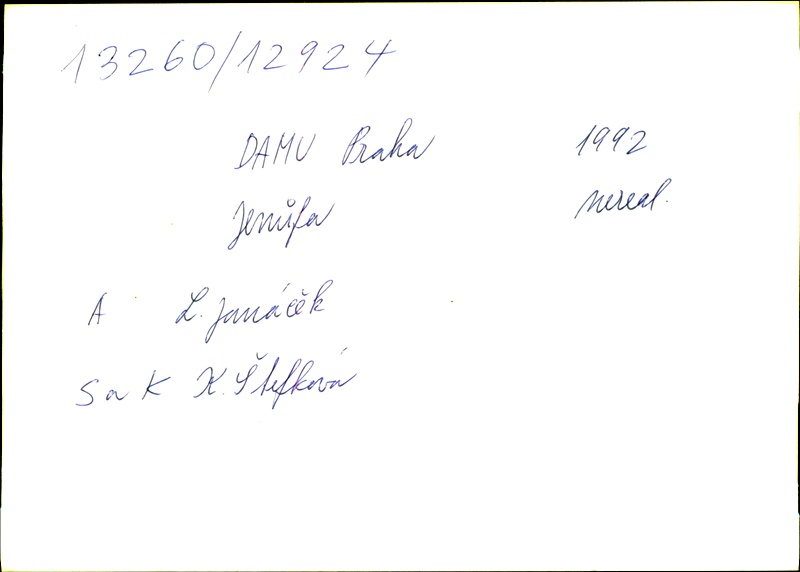 13260/12924
DAMU Praha 1992
Jenůfa nereal.
A L. Janáček
S a K K. Štefková